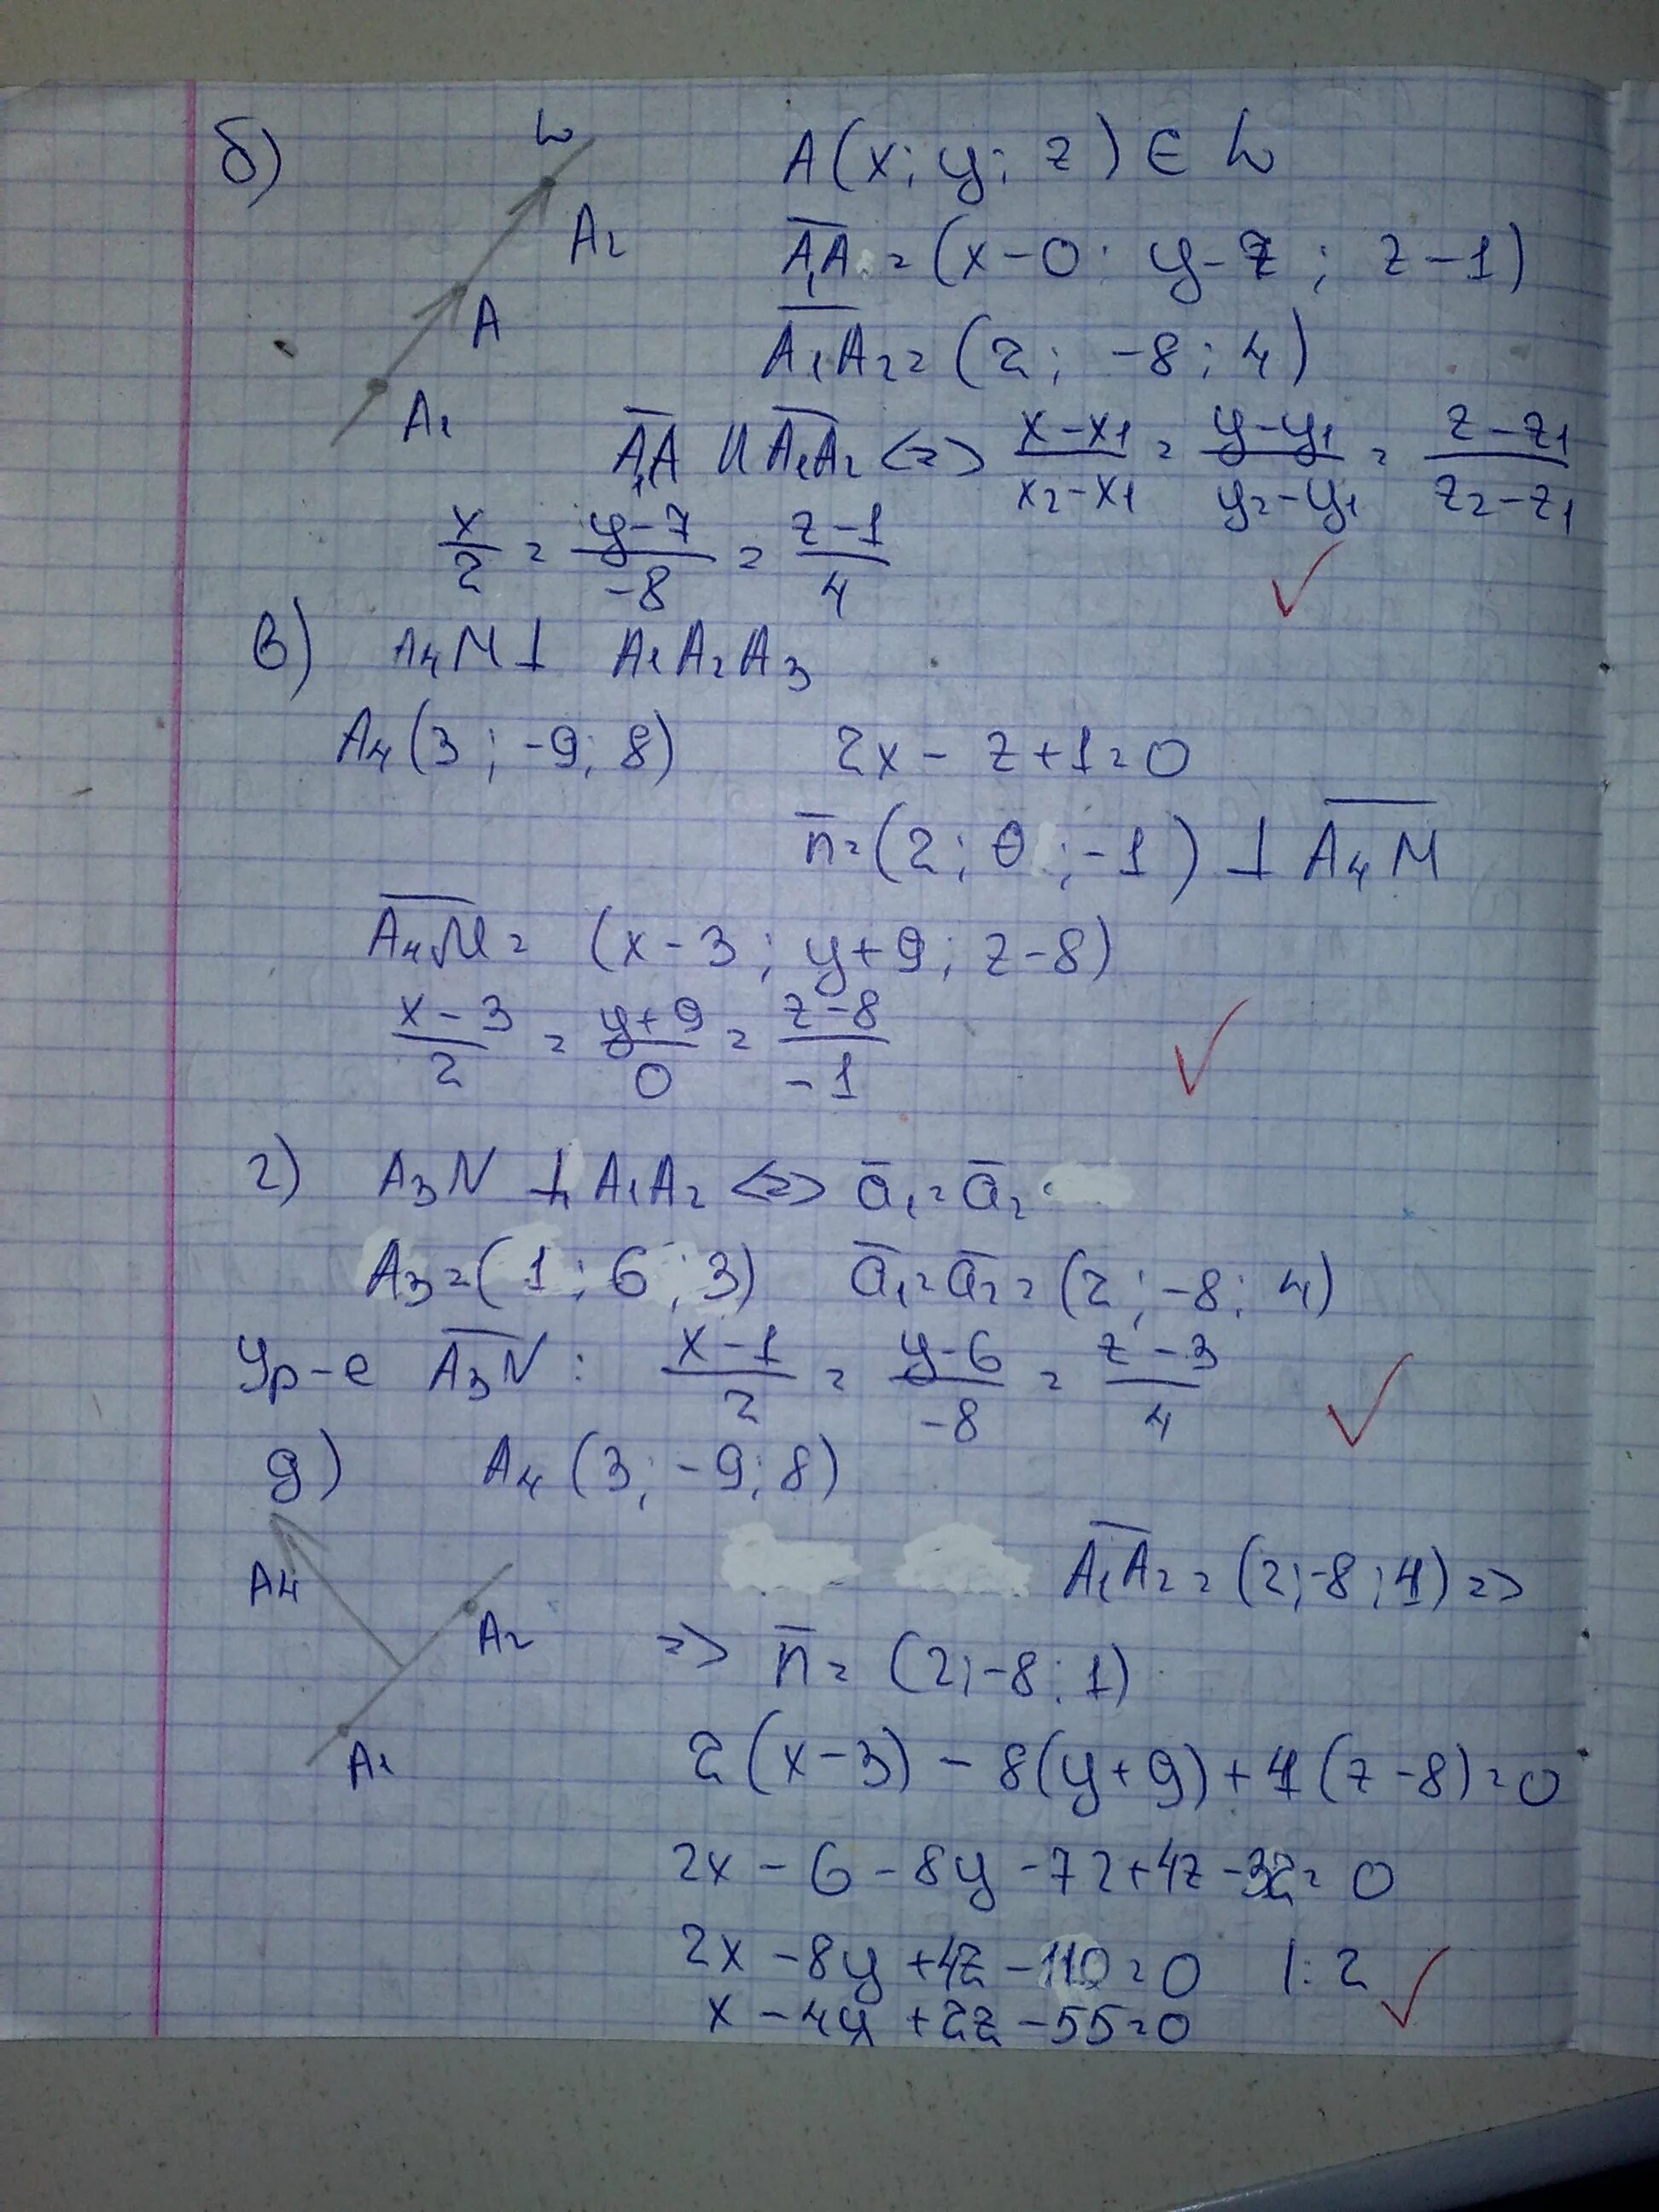 б) L A(x; y; z) ∈ L
A₂ A₁A = (x-0; y-7; z-1)
A A₁A₂ = (2; -8; 4)
A₁ A₁A || A₁A₂ <=> x-x₁/x₂-x₁ = y-y₁/y₂-y₁ = z-z₁/z₂-z₁
x/2 = y-7/-8 = z-1/4
в) A₄M ⊥ A₁A₂A₃
A₄(3; -9; 8) 2x - z + 1 = 0
n̄ = (2; 0; -1) ⊥ A₄M
A₄M = (x-3; y+9; z-8)
x-3/2 = y+9/0 = z-8/-1
г) A₃N A₁A₂ <=> ā₁ = ā₂
A₃ = (1; 6; 3) ā₁ = ā₂ = (2; -8; 4)
Ур-е A₃N: x-1/2 = y-6/-8 = z-3/4
д) A₄(3; -9; 8)
A₄ A₁A₂ = (2; -8; 4) =>
A₂ => n̄ = (2; -8; 1)
A₁ 2(x-3) - 8(y+9) + 4(z-8) = 0
2x - 6 - 8y - 72 + 4z - 32 = 0
2x - 8y + 4z - 110 = 0 |: 2
x - 4y + 2z - 55 = 0